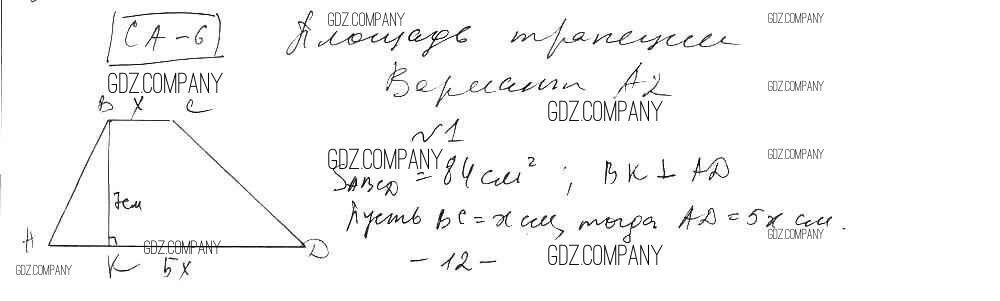 СА-6
GDZ.COMPANY
Площадь трапеции
GDZ.COMPANY
GDZ.COMPANY
Вариант А2
GDZ.COMPANY
GDZ.COMPANY
B x C
№1
GDZ.COMPANY
GDZ.COMPANY
SABCD = 84 см² ; BK ⊥ AD
7см
Пусть BC = x см, тогда AD = 5x см.
GDZ.COMPANY
A K D
GDZ.COMPANY
5x
- 12 -
GDZ.COMPANY
GDZ.COMPANY